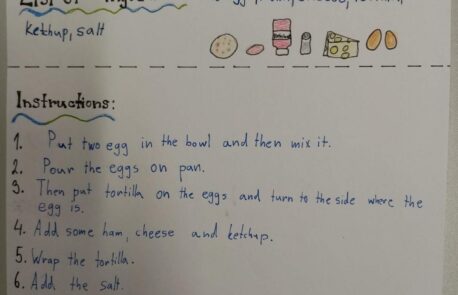 List of
ketchup, salt
Instructions:
1. Put two egg in the bowl and then mix it.
2. Pour the eggs on pan.
3. Then put tortilla on the eggs and turn to the side where the
egg is.
4. Add some ham, cheese and ketchup.
5. Wrap the tortilla.
6. Add the salt.